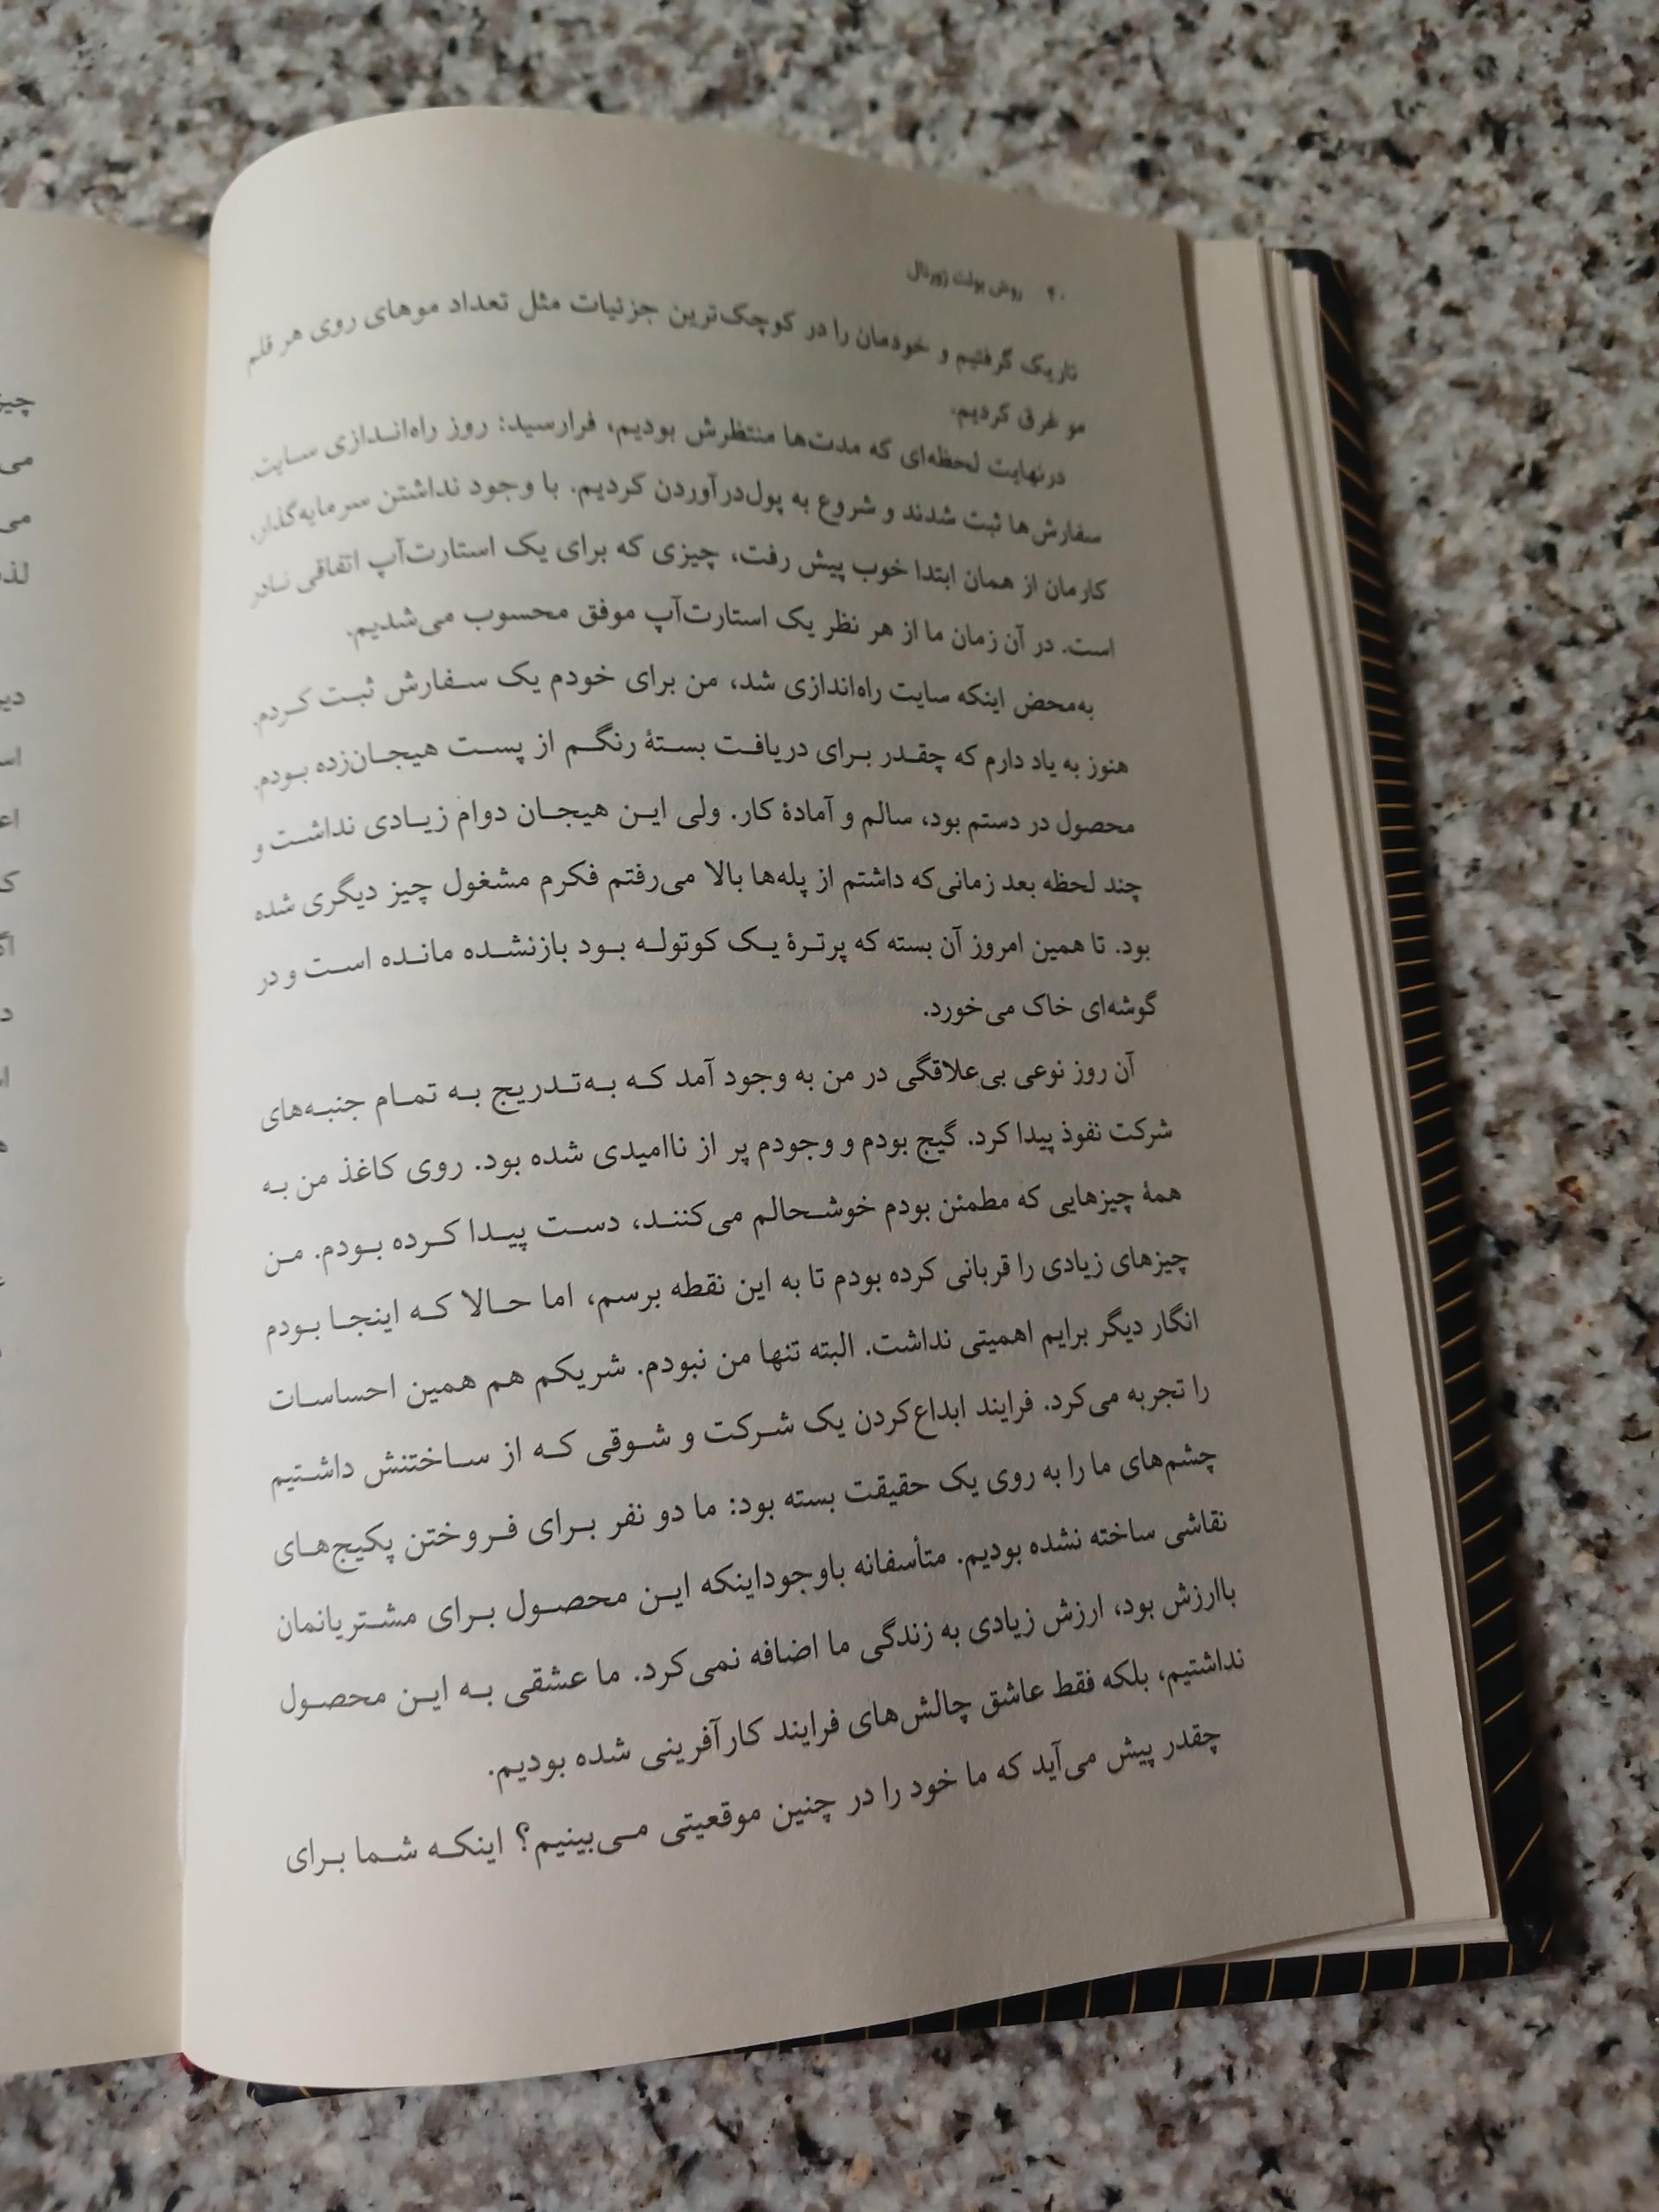 ۴۰ روش بولت ژورنال
تاریک گرفتیم و خودمان را در کوچک‌ترین جزئیات مثل تعداد موهای روی هر قلم
مو غرق کردیم.
درنهایت لحظه‌ای که مدت‌ها منتظرش بودیم، فرارسید: روز راه‌اندازی سایت.
سفارش‌ها ثبت شدند و شروع به پول‌درآوردن کردیم. با وجود نداشتن سرمایه‌گذار،
کارمان از همان ابتدا خوب پیش رفت، چیزی که برای یک استارت‌آپ اتفاقی نادر
است. در آن زمان ما از هر نظر یک استارت‌آپ موفق محسوب می‌شدیم.
به‌محض اینکه سایت راه‌اندازی شد، من برای خودم یک سفارش ثبت کردم.
هنوز به یاد دارم که چقدر برای دریافت بستهٔ رنگم از پست هیجان‌زده بودم.
محصول در دستم بود، سالم و آمادهٔ کار. ولی این هیجان دوام زیادی نداشت و
چند لحظه بعد زمانی‌که داشتم از پله‌ها بالا می‌رفتم فکرم مشغول چیز دیگری شده
بود. تا همین امروز آن بسته که پرترهٔ یک کوتوله بود بازنشده مانده است و در
گوشه‌ای خاک می‌خورد.
آن روز نوعی بی‌علاقگی در من به وجود آمد که به‌تدریج به تمام جنبه‌های
شرکت نفوذ پیدا کرد. گیج بودم و وجودم پر از ناامیدی شده بود. روی کاغذ من به
همهٔ چیزهایی که مطمئن بودم خوشحالم می‌کنند، دست پیدا کرده بودم. من
چیزهای زیادی را قربانی کرده بودم تا به این نقطه برسم، اما حالا که اینجا بودم
انگار دیگر برایم اهمیتی نداشت. البته تنها من نبودم. شریکم هم همین احساسات
را تجربه می‌کرد. فرایند ابداع‌کردن یک شرکت و شوقی که از ساختنش داشتیم
چشم‌های ما را به روی یک حقیقت بسته بود: ما دو نفر برای فروختن پکیج‌های
نقاشی ساخته نشده بودیم. متأسفانه باوجوداینکه این محصول برای مشتریانمان
باارزش بود، ارزش زیادی به زندگی ما اضافه نمی‌کرد. ما عشقی به این محصول
نداشتیم، بلکه فقط عاشق چالش‌های فرایند کارآفرینی شده بودیم.
چقدر پیش می‌آید که ما خود را در چنین موقعیتی می‌بینیم؟ اینکه شما برای